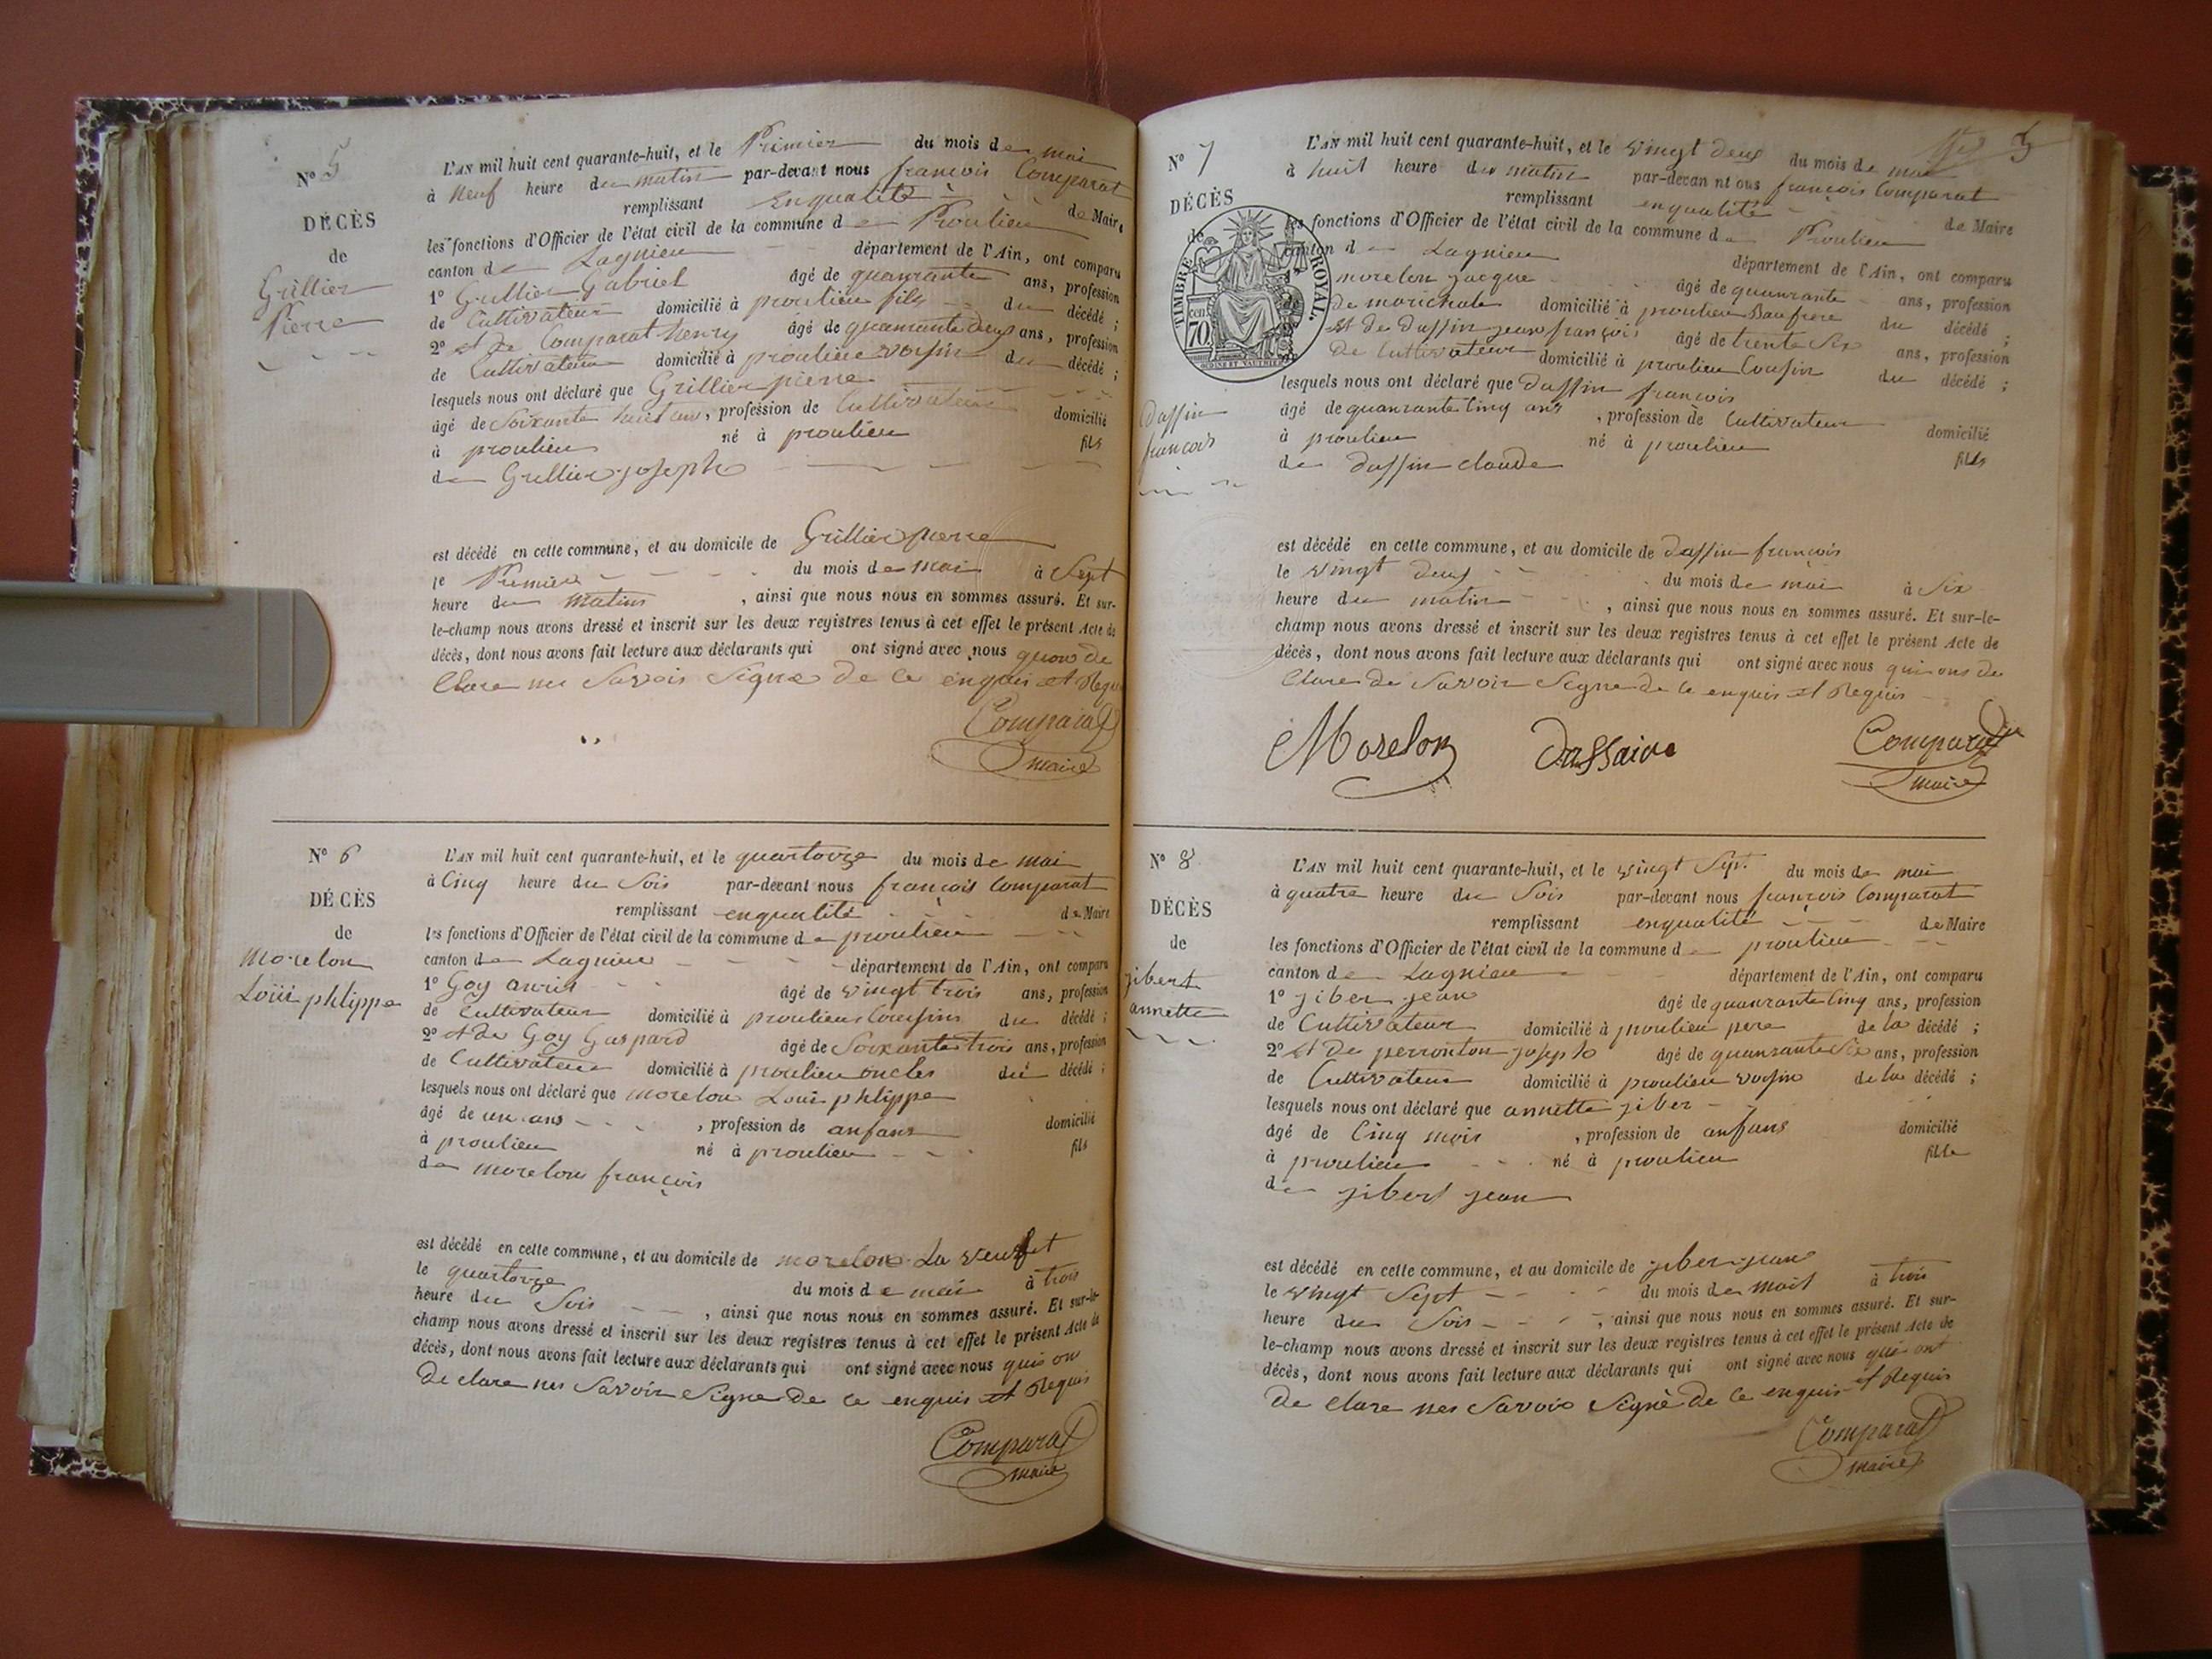 N° 5
DÉCÈS
de
Grillier
Pierre
L'AN mil huit cent quarante-huit, et le Primier du mois de mai
à Neuf heure du matin par-devant nous francois Comparat
remplissant enqualité de Maire
les fonctions d'Officier de l'état civil de la commune de Proulieu
canton de Lagnieu département de l'Ain, ont comparu
1° Grillier Gabriel âgé de quanrante ans, profession
de Cultivateur domicilié à proulieu fils du décédé ;
2° et de Comparat henry âgé de quanrante deux ans, profession
de Cultivateur domicilié à proulieu voisin du décédé ;
lesquels nous ont déclaré que Grillier pierre
âgé de Soixante huit ans, profession de Cultivateur domicilié
à proulieu né à proulieu fils
de Grillier joseph
est décédé en cette commune, et au domicile de Grillier pierre
le Primier du mois de mai à Sept
heure du matin , ainsi que nous nous en sommes assuré. Et sur-
le-champ nous avons dressé et inscrit sur les deux registres tenus à cet effet le présent Acte de
décès, dont nous avons fait lecture aux déclarants qui ont signé avec nous quon de
Clare nes Savoir Signe de ce enquis et Requi
Comparat
maire
N° 6
DÉCÈS
de
morelon
Loüi phlippe
L'AN mil huit cent quarante-huit, et le quartorze du mois de mai
à Cinq heure du Soir par-devant nous françois Comparat
remplissant enqualité de Maire
les fonctions d'Officier de l'état civil de la commune de proulieu
canton de Lagnieu département de l'Ain, ont comparu
1° Goy âgé de vingt trois ans, profession
de Cultivateur domicilié à proulieu Cousin du décédé ;
2° et de Goy Gaspard âgé de Soixante trois ans, profession
de Cultivateur domicilié à proulieu oncles du décédé ;
lesquels nous ont déclaré que morelon Loui phlippe
âgé de un ans , profession de anfans domicilié
à proulieu né à proulieu fils
de morelon françois
est décédé en cette commune, et au domicile de morelon La
le quartorze du mois de mai à trois
heure du Soir , ainsi que nous nous en sommes assuré. Et sur-le-
champ nous avons dressé et inscrit sur les deux registres tenus à cet effet le présent Acte de
décès, dont nous avons fait lecture aux déclarants qui ont signé avec nous quis on
De clare nes Savoir Signe de ce enquis et Requis
Comparat
maire
5
N° 7
DÉCÈS
de
TIMBRE ROYAL.
70 cen
Daffin
francois
L'AN mil huit cent quarante-huit, et le vingt deux du mois de mai
à huit heure du matin par-devan nt ous françois Comparat
remplissant enqualité de Maire
les fonctions d'Officier de l'état civil de la commune de Proulieu
canton de Lagnieu département de l'Ain, ont comparu
morelon jacque âgé de quanrante ans, profession
de marichale domicilié à proulieu Baufrere du décédé ;
et de daffin jean françois âgé de trente Six ans, profession
de Cultivateur domicilié à proulieu Cousin du décédé ;
lesquels nous ont déclaré que daffin francois
âgé de quanrante Cinq ans , profession de Cultivateur domicilié
à proulieu né à proulieu fils
de daffin claude
est décédé en cette commune, et au domicile de daffin françois
le vingt deux du mois de mai à Six
heure du matin , ainsi que nous nous en sommes assuré. Et sur-le-
champ nous avons dressé et inscrit sur les deux registres tenus à cet effet le présent Acte de
décès, dont nous avons fait lecture aux déclarants qui ont signé avec nous qui ons de
Clare de Savoir Signe de ce enquis et Requis
Morelon Comparat
maire
N° 8
DÉCÈS
de
jibert
annette
L'AN mil huit cent quarante-huit, et le vingt Sept du mois de mai
à quatre heure du Soir par-devant nous françois Comparat
remplissant enqualité de Maire
les fonctions d'Officier de l'état civil de la commune de proulieu
canton de Lagnieu département de l'Ain, ont comparu
1° jiber jean âgé de quanrante Cinq ans, profession
de Cultivateur domicilié à proulieu pere de la décédé ;
2° et de perronton joseph âgé de quanrante Six ans, profession
de Cultivateur domicilié à proulieu voisin de la décédé ;
lesquels nous ont déclaré que annette jiber
âgé de Cinq mois , profession de anfans domicilié
à proulieu né à proulieu fille
de jibert jean
est décédé en cette commune, et au domicile de jiber jean
le vingt Sept du mois de mait à trois
heure du Soir , ainsi que nous nous en sommes assuré. Et sur-
le-champ nous avons dressé et inscrit sur les deux registres tenus à cet effet le présent Acte de
décès, dont nous avons fait lecture aux déclarants qui ont signé avec nous qui ont
De Clare nes Savoir Signé de ce enquis et Requis
Comparat
maire